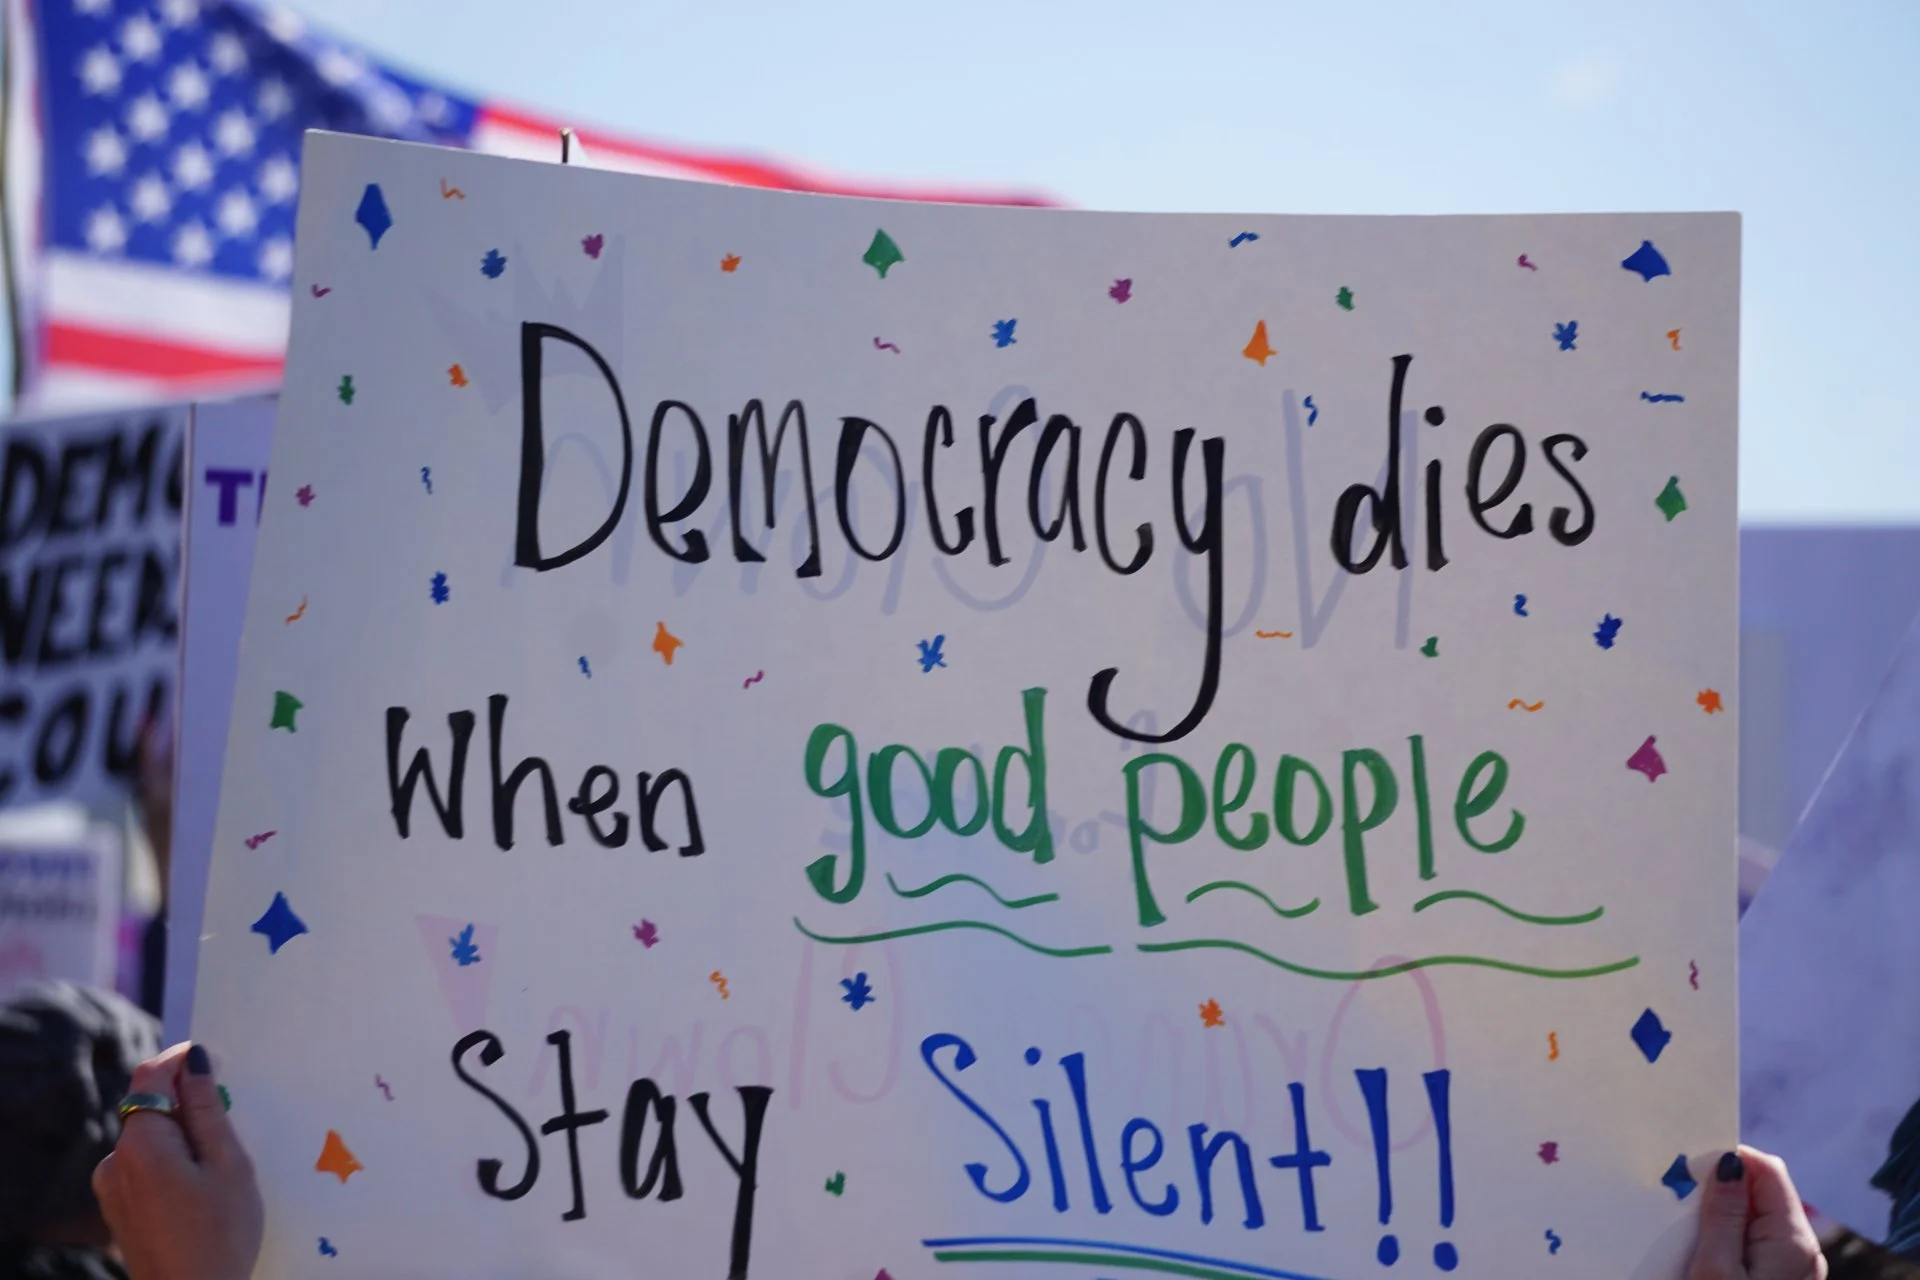 Democracy dies
When good people
Stay Silent!!
DEMO
NEED
COU